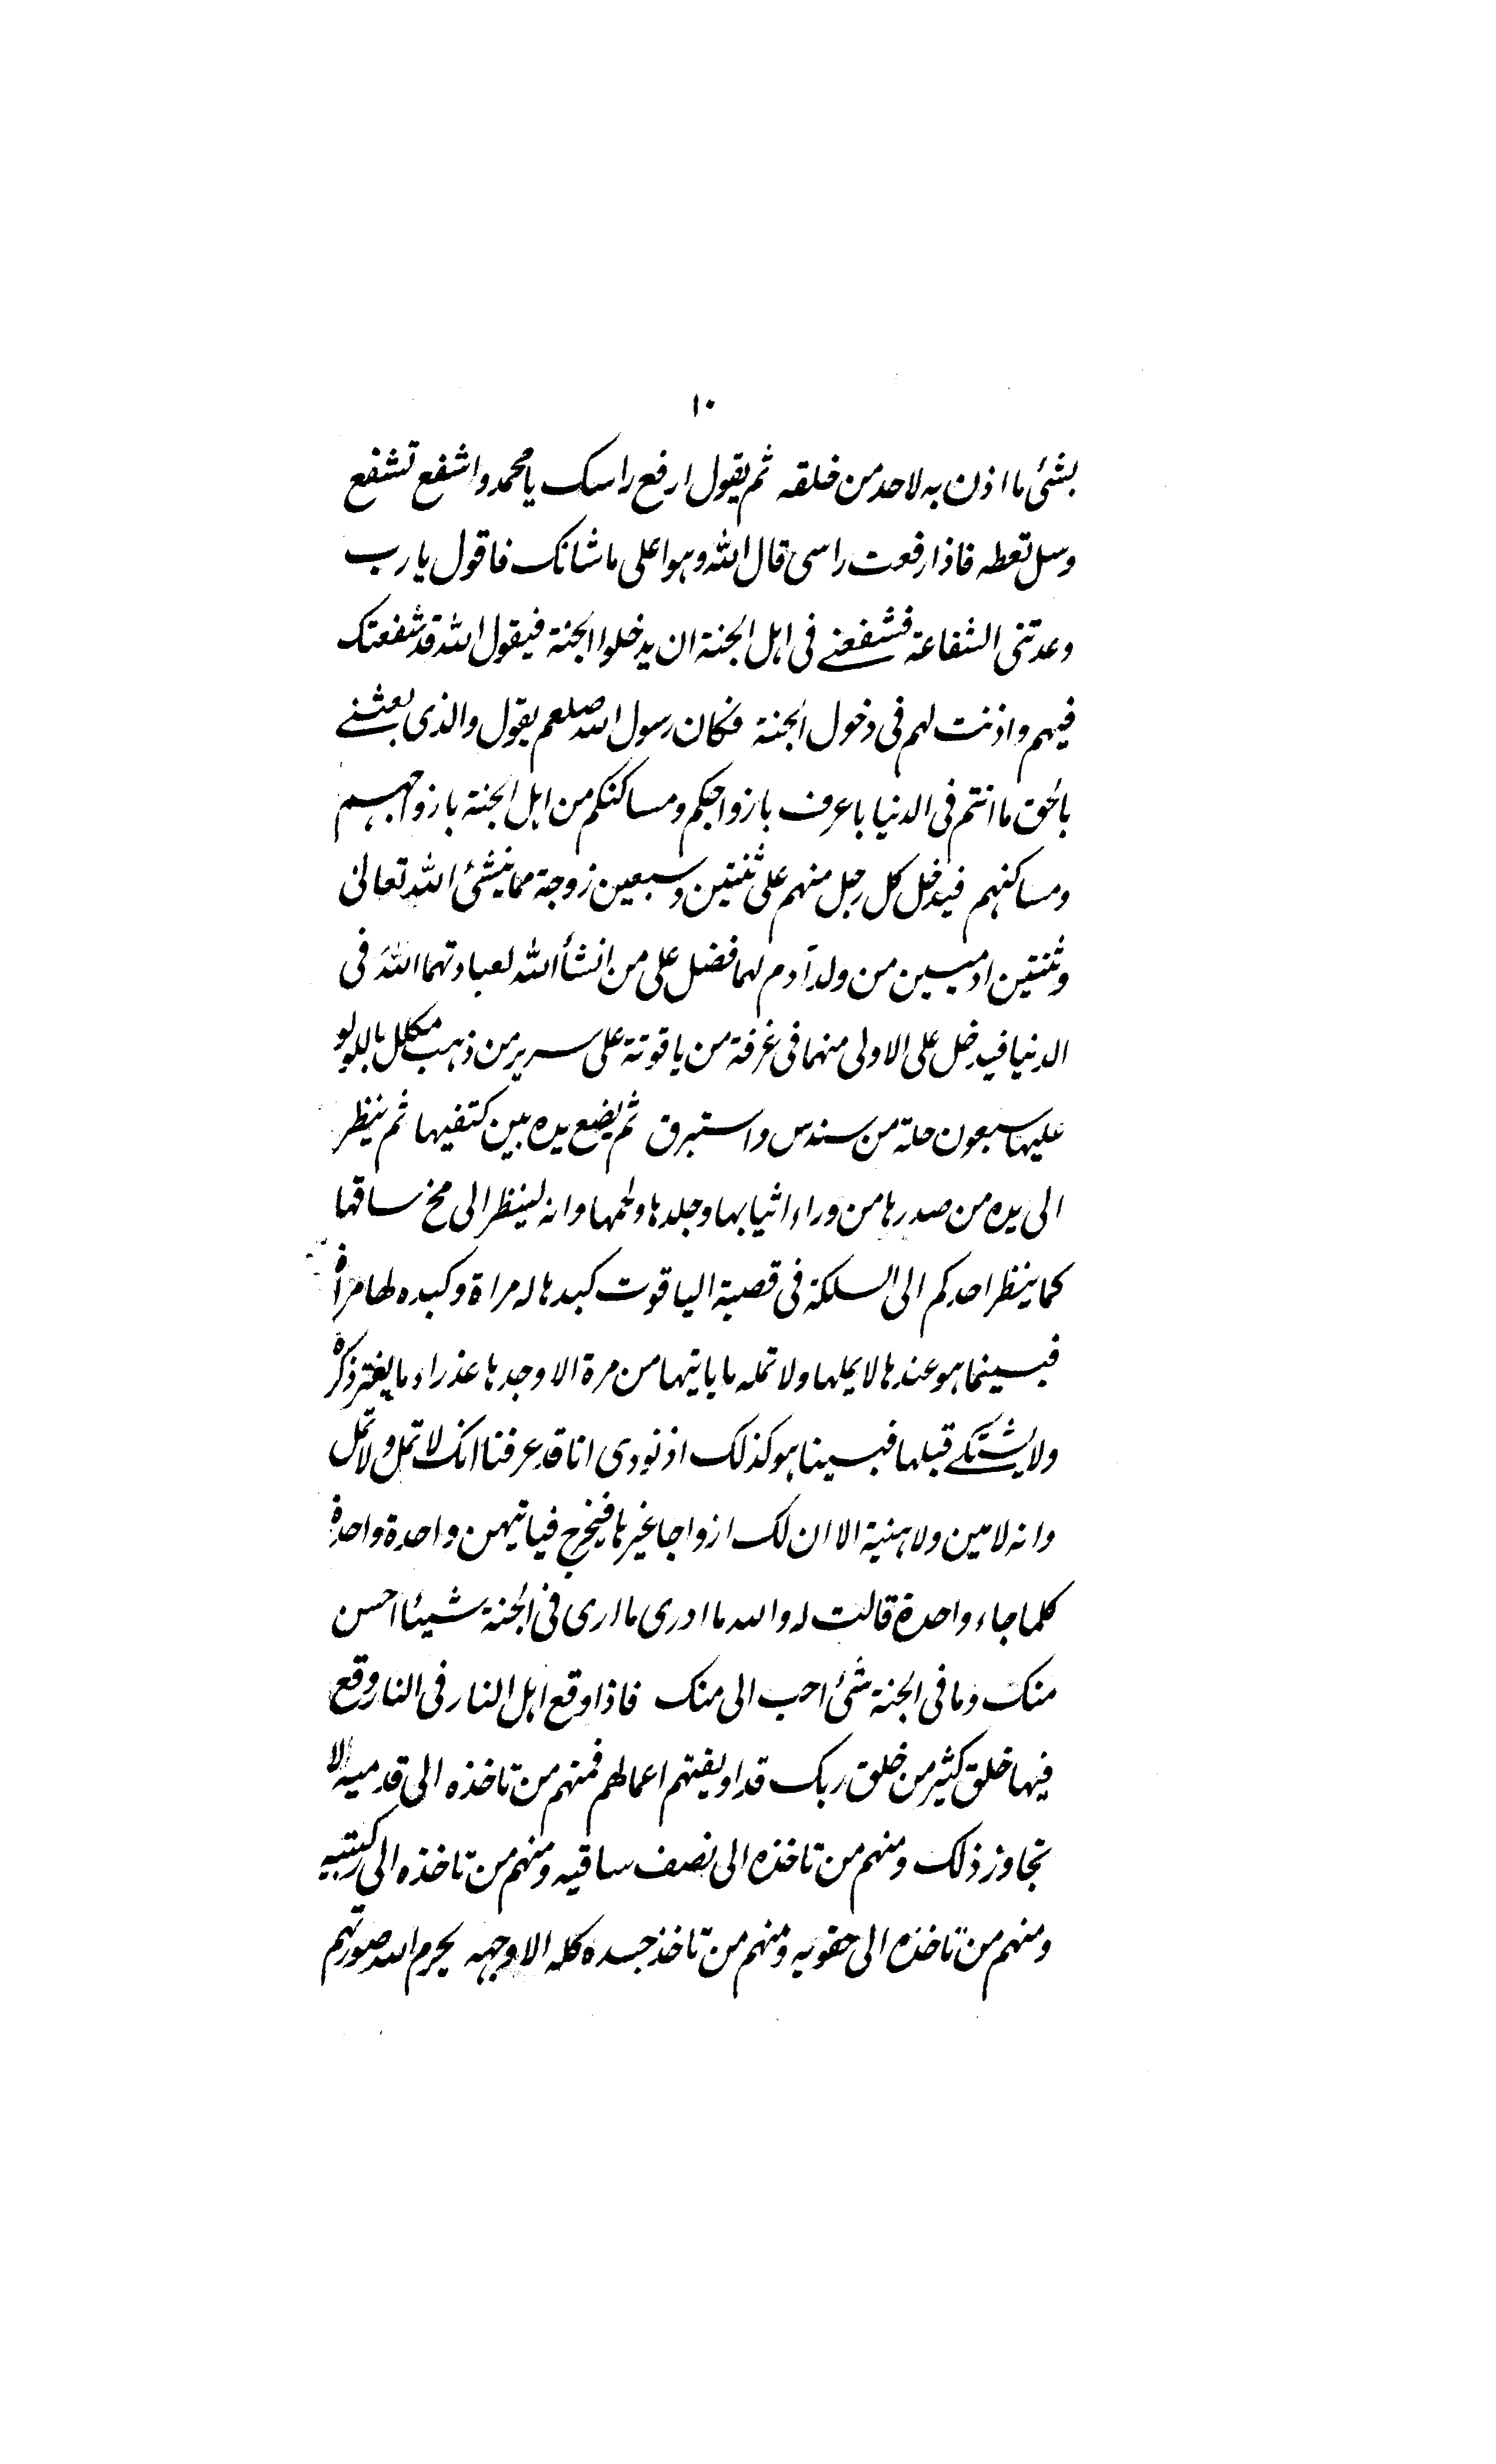 ١٠
بشئ ما اذن به لاحد من خلقه ثم يقول ارفع راسك يا محمد واشفع تشفع
وسل تعطه فاذا رفعت راسى قال الله وهو اعلى ما شانك فاقول يا رب
وعدتنى الشفاعة فشفعنے فى اهل الجنة ان يدخلوا الجنة فيقول الله قد شفعتك
فيهم واذنت لهم فى دخول الجنة فكان رسول الله صلعم يقول والذى بعثنے
بالحق ما انتم فى الدنيا باعرف بازواجكم ومساكنكم من اهل الجنة بازواجهم
ومساكنهم فيدخل كل رجل منهم على ثنتين وسبعين زوجة مما ينشئ الله تعالى
وثنتين ادميين من ولد آدم لهما فضل على من انشأ الله لعبادتهما الله فى
الدنيا فيدخل على الاولى منهما فى غرفة من ياقوتة على سرير من ذهب مكلل باللولو
عليها سبعون حلة من سندس واستبرق ثم يضع يده بين كتفيها ثم ينظر
الى يده من صدرها من وراء ثيابها وجلدها ولحمها وانه لينظر الى مخ ساقها
كما ينظر احدكم الى السلكة فى قصبة الياقوت كبدها له مراة وكبده لها مراة
فبينما هو عندها لا يملها ولا تمله ما ياتيها من مرة الا وجدها عذراء ما يفتر ذكره
ولا يشتكے قبلها فبينا هو كذلك اذ نودى انا قد عرفنا انك لا تمل ولا تمل
وانه لا مين ولا هنية الا ان لك ازواجا غيرها فيخرج فياتيهن واحدة واحدة
كلما جاء واحدة قالت له والله ما ادرى ما ارى فى الجنة شيئا احسن
منك وما فى الجنة شئ احب الى منك فاذا وقع اهل النار فى النار وقع
فيها خلق كثير من خلق ربك قد اوبقتهم اعمالهم فمنهم من تاخذه الى قدميه لا
تجاوز ذلك ومنهم من تاخذه الى نصف ساقيه ومنهم من تاخذه الى ركبتيه
ومنهم من تاخذه الى حقويه ومنهم من تاخذ جسده كله الا وجهه يحرم الله صورتهم